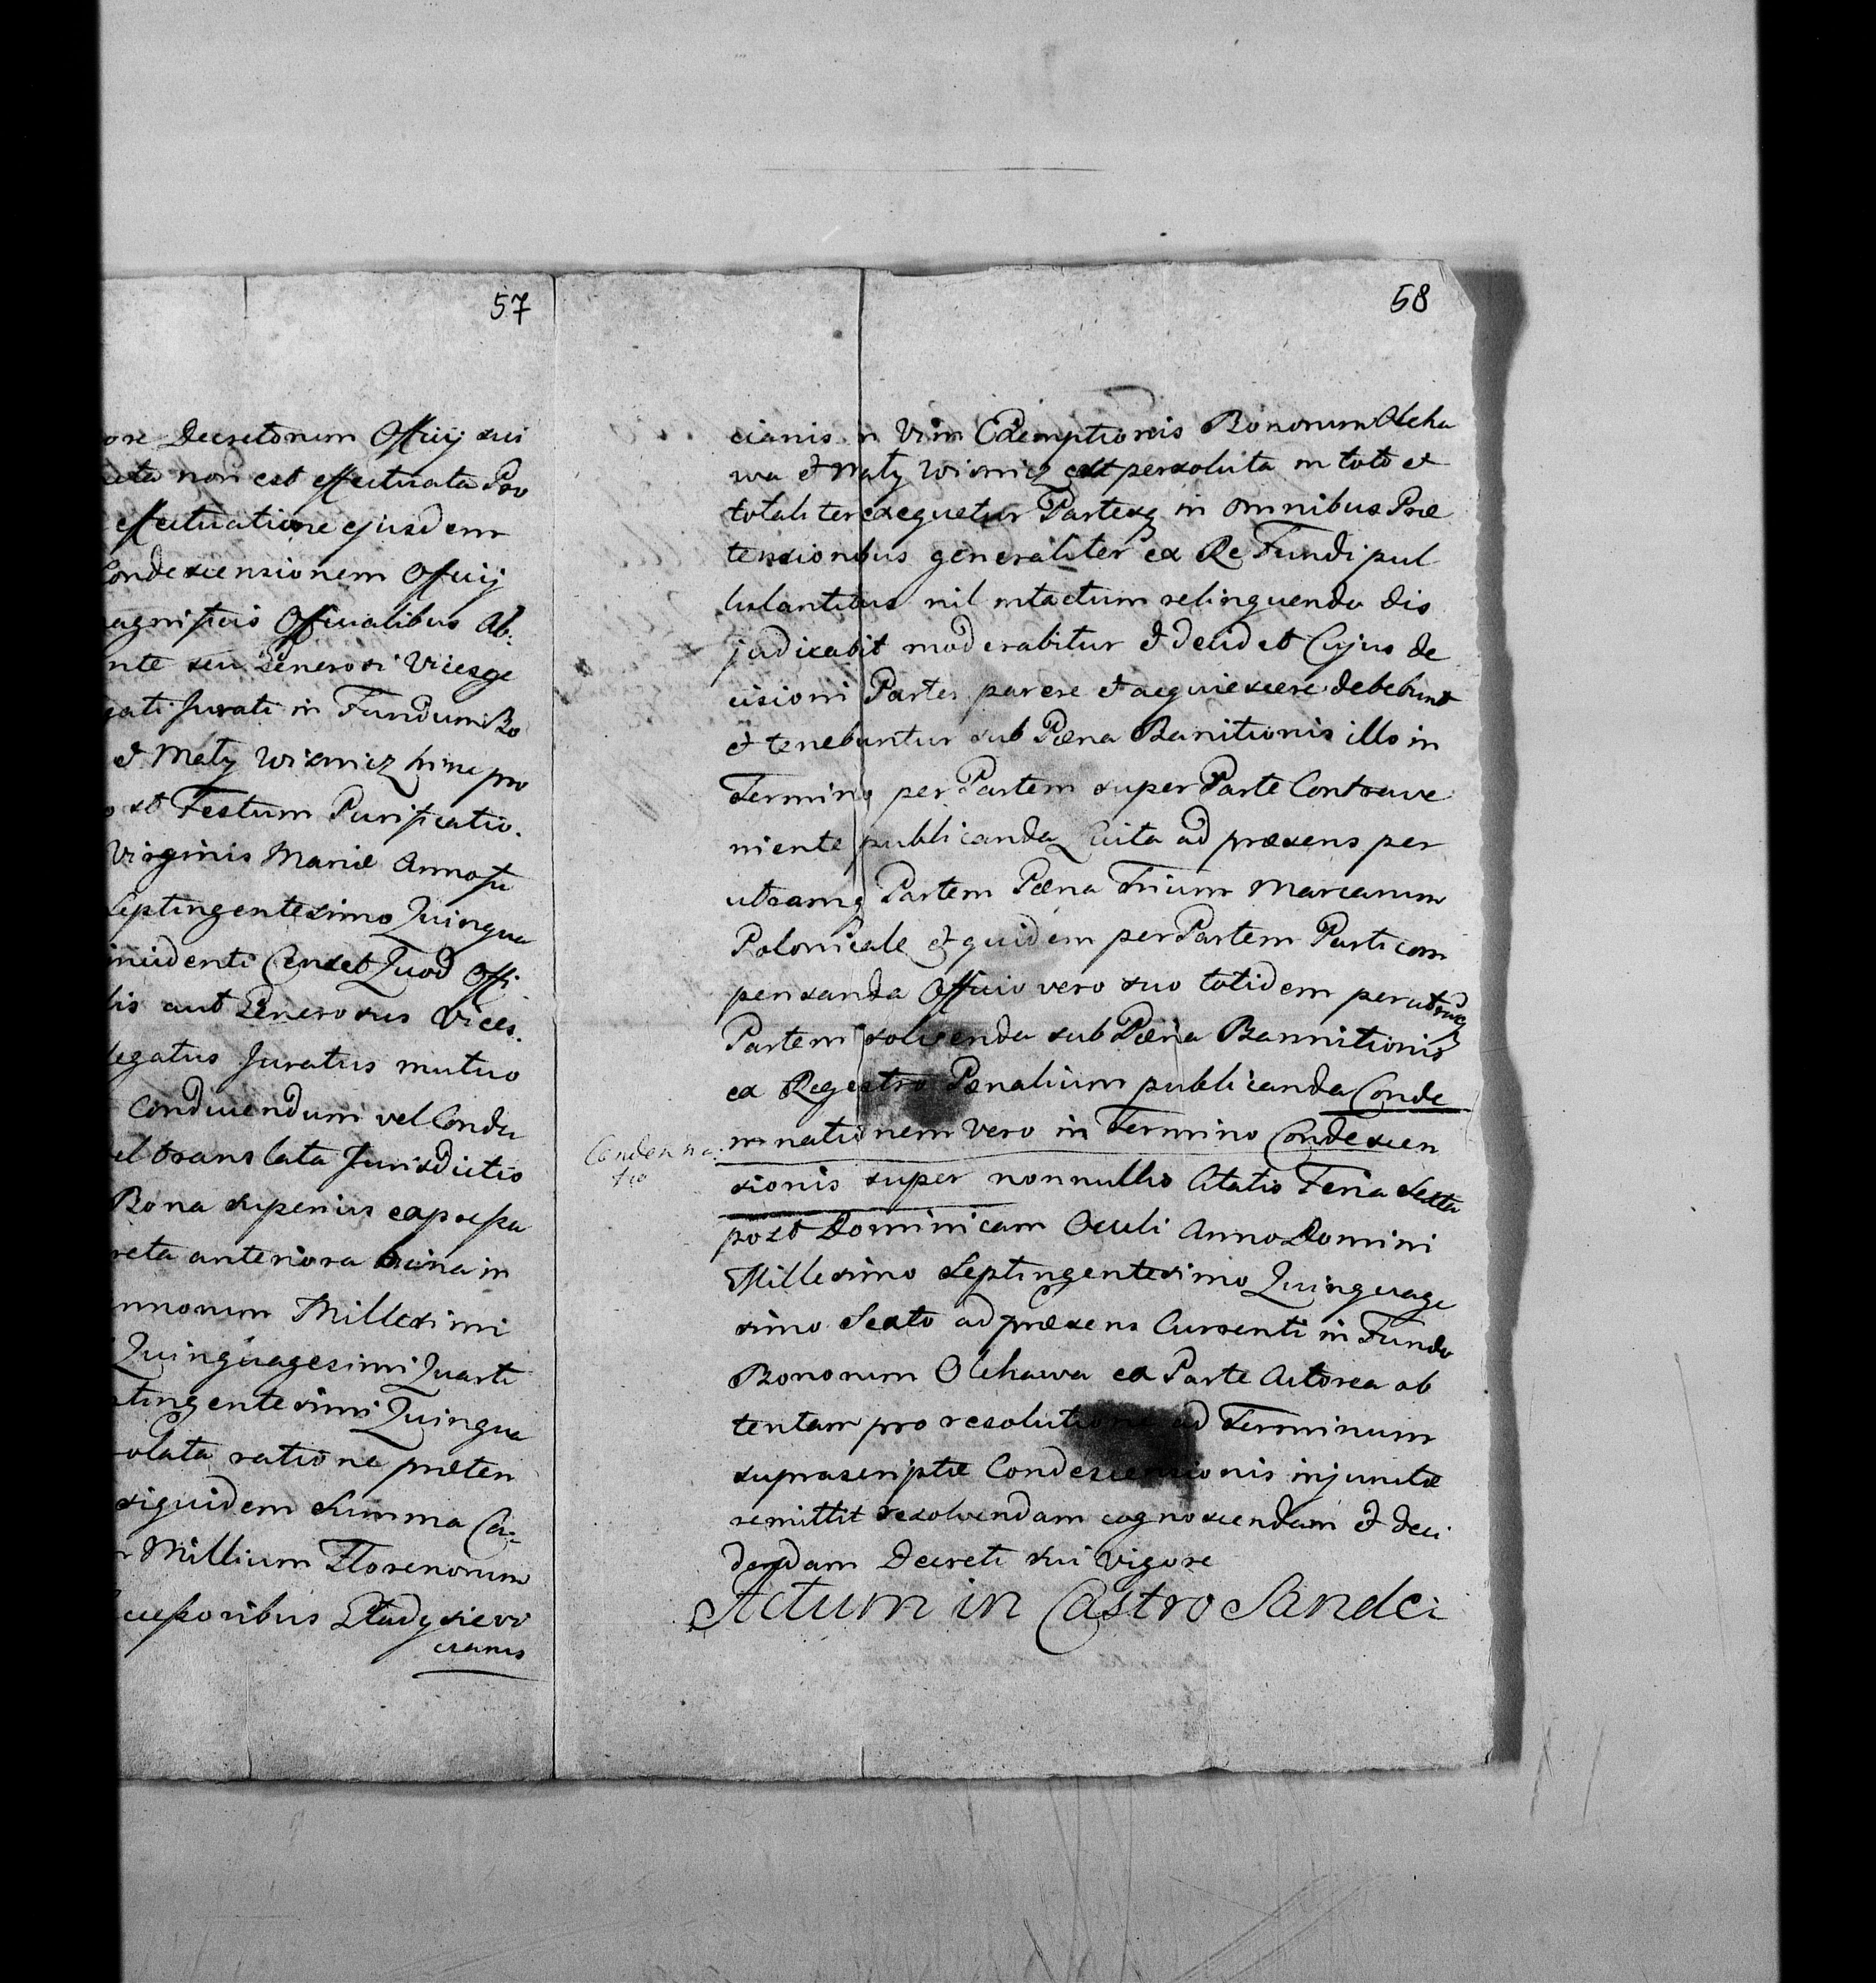 57
ore Decretorum Officij sui
non est effectuata Pro
effectuatione ejusdem
Condescensionem Officij
agnificis Officialibus Ab:
nte seu Generosi Vicesge
gati Jurati in Fundum Bo
et Mały Wisnicz hinc pro
st Festum Purificatio.
Virginis Mariæ Anno fu
Septingentesimo Quinqua
incidenti Censet Quod Offi
lis aut Generosus Vices.
legatus Juratus mutuo
Conducendum vel Condu
el translata Jurisdictio
Bona superius expressa
reta anteriora bina in
nnorum Millesimi
Quinquagesimi Quarti
ptingentesimi Quinqua
olata ratione præten
siquidem Summa Ca=
Millium Florenorum
cessoribus Gładysievi
cianis
58
cianis in Vim Exemptionis Bonorum Olcha
wa et Mały Wisnicz est persoluta in toto et
totaliter exequetur Partesq in omnibus Præ
tensionibus generaliter ex Re Fundi pul
lulantibus nil intactum relinquendo dis
judicabit moderabitur et decidet Cujus de
cisioni Partes parere et acquiescere debebunt
et tenebuntur sub Pæna Banitionis illo in
Termino per Partem super Parte Contrave
niente publicanda Luita ad præsens per
utramq Partem Pæna Trium Marcarum
Polonicale et quidem per Partem Parti com
pensanda Officio vero suo totidem per utramq
Partem solvenda sub Pæna Bannitionis
ex Regestro Pænalium publicanda Conde
mnationem vero in Termino Condescen
Condemna:
tio
sionis super nonnullis Citatis Feria Sexta
post Dominicam Oculi Anno Domini
Millesimo Septingentesimo Quinquage
simo Sexto ad præsens Currenti in Fundo
Bonorum Olchawa ex Parte Actorea ob
tentam pro resolutione ad Terminum
suprascriptæ Condescensionis injunctæ
remittit resolvendam cognoscendam et deci
dendam Decreti sui vigore
Actum in Castro Sandci